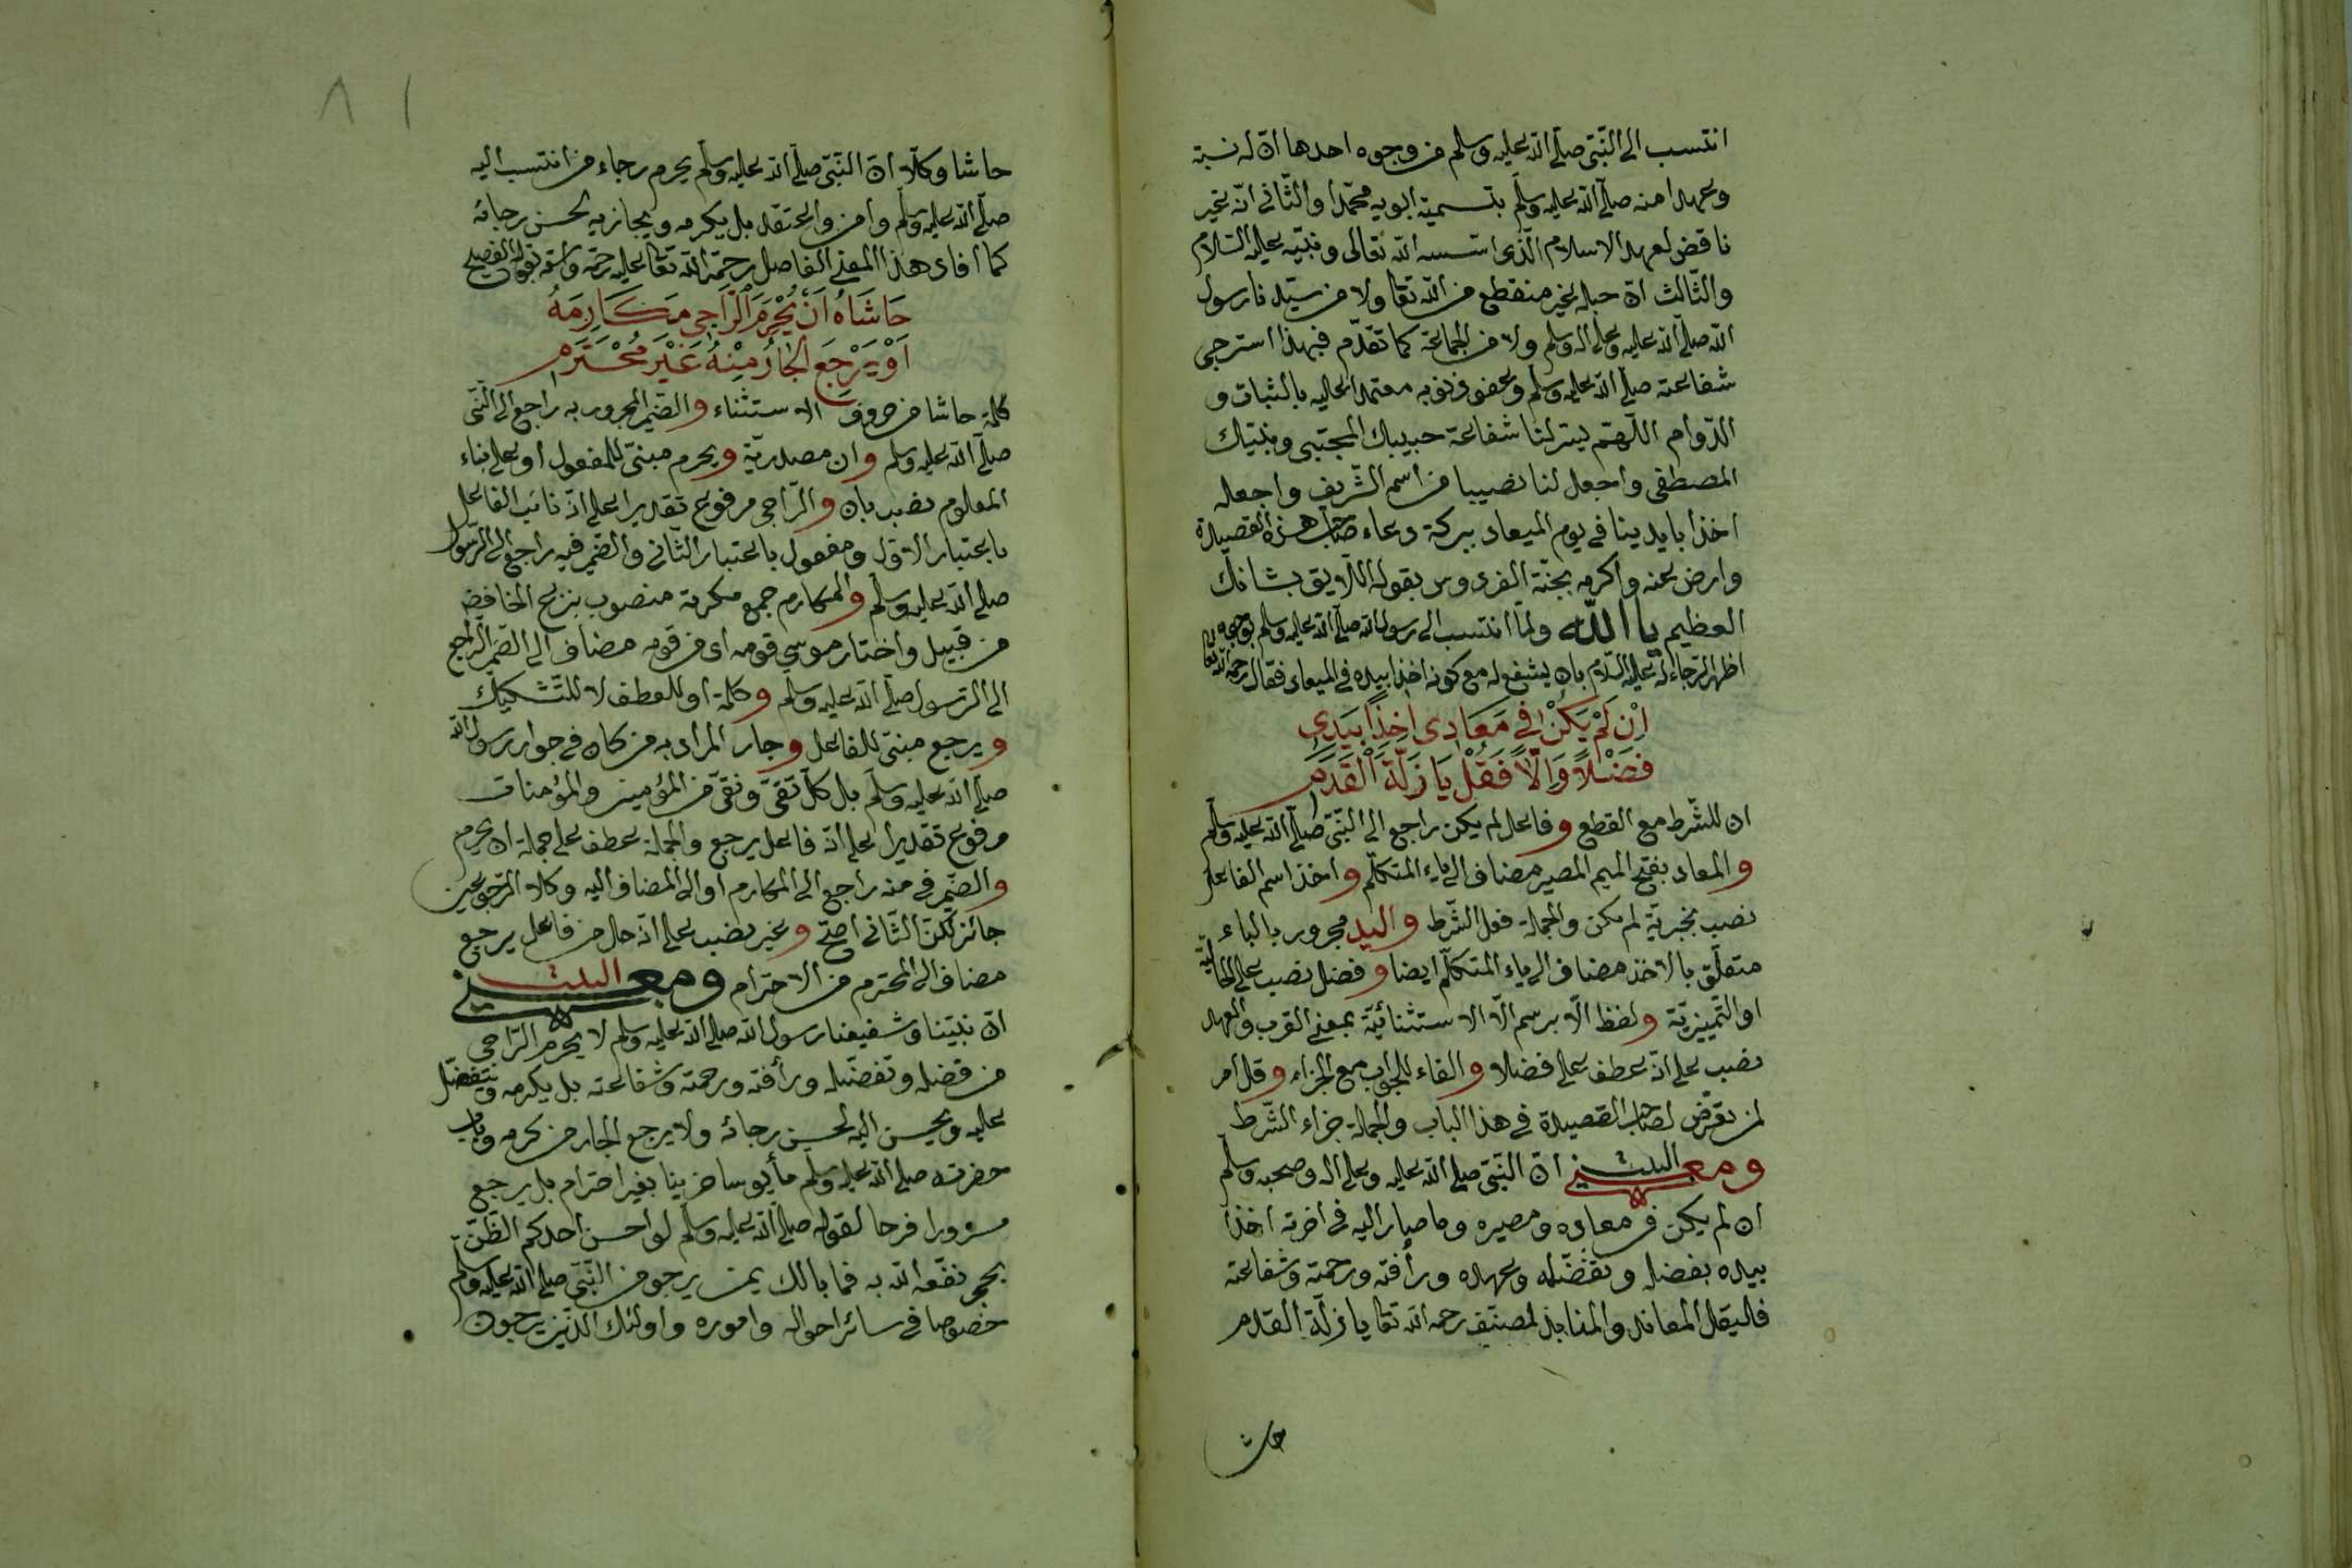 انتسب الى النّبّى صلّى الله عليه وسلم من وجوه احدها انّ له نسبة
وعهدا منه صلّى الله عليه وسلّم بتسمية ابويه محمّدا والثّانى انّه غير
ناقض لعهد الاسلام الّذى اسّسه الله تعالى ونبيّه عليه السّلام
والثّالث انّ حبله غير منقطع من الله تعا ولا من سيّدنا رسول
الله صلّى الله عليه وعلى اله وسلم ولا من الجماعة كما تقدّم فبهذا استرجى
شفاعته صلّى الله عليه وسلّم وعفو ذنوبه معتمدا عليه بالثبات و
الدّوام اللّهمّ يسّر لنا شفاعة حبيبك المجتبى ونبيّك
المصطفى واجعل لنا نصيبا من اسم الشّريف واجعله
اخذا بايدينا فى يوم الميعاد ببركة دعاء صاحب هذه القصيدة
وارض عنه واكرمه بجنّة الفردوس بقوله اللّايق بشانك
العظيم يا الله ولمّا انتسب الى رسول الله صلّى الله عليه وسلم بوجوه
اظهر الرّجاء له عليه السّلام بان يشفع له مع كونه اخذا بيده فى الميعاد فقال رحمه الله تعا
اِنْ لَمْ يَكُنْ فِى مَعَادِى اٰخِذًا بِيَدِى
فَضْلًا وَاِلَّا فَقُلْ يَا زَلَّةَ الْقَدَمِ
ان للشّرط مع القطع وفاعل لم يكن راجع الى النّبّى صلّى الله عليه وسلّم
والمعاد بفتح الميم المصير مضاف الى ياء المتكلّم واخذا اسم الفاعل
نصب بخبريّة لم يكن والجملة فعل الشّرط واليد مجرور بالباء
متعلّق بالاخذ مضاف الى ياء المتكلّم ايضا وفضل نصب على الحاليّة
او التّمييزيّة ولفظ الّا برسم الّا الاستثنائيّة بمعنى القرب والعهد
نصب على انّه عطف على فضلا والفاء للجواب مع الجزاء وقل امر
لمن تعرّض لصاحب القصيدة فى هذا الباب والجملة جزاء الشّرط
ومعنى البيت انّ النّبّى صلى الله عليه وعلى اله وصحبه وسلّم
ان لم يكن فى معاده ومصيره وما صار اليه فى اخرته اخذا
بيده بفضله وتفضّله وعهده ورأفته ورحمته وشفاعته
فاليقل المعاند والمنابذ لمصنّف رحمه الله تعا يا زلّة القدم
حاش
حاشا وكلّا انّ النّبّى صلّى الله عليه وسلّم يحرم رجاء من انتسب اليه
صلّى الله عليه وسلّم وامن واعتقد بل يكرمه ويجازيه بحسن رجائه
كما افاد هذا المعنى الفاضل رحمة الله تعا عليه رحمة واسعة بقوله الفصيح
حَاشَاهُ اَنْ يُحْرَمَ الرَّاجِى مَكَارِمَهُ
اَوْ يَرْجِعَ الْجَارُ مِنْهُ غَيْرَ مُحْتَرَمِ
كلمة حاشا من حروف الاستثناء والضّمير المجرور به راجع الى النّبّى
صلّى الله عليه وسلم وان مصدريّة ويحرم مبنىّ للمفعول او على بناء
المعلوم نصب بان والرّاجى مرفوع تقديرا على انّه نائب الفاعل
باعتبار الاوّل ومفعول باعتبار الثّانى والضّمير فيه راجع الى الرّسول
صلى الله عليه وسلّم والمكارم جمع مكرمة منصوب بنزع الخافض
من قبيل واختار موسى قومه اى من قومه مضاف الى الضّمير الرّاجع
الى الرّسول صلّى الله عليه وسلّم وكلمة او للعطف لا للتّشكيك
ويرجع مبنىّ للفاعل وجار المراد به من كان فى جوار رسول الله
صلى الله عليه وسلّم بل كلّ تقىّ ونقىّ من المؤمنين والمؤمنات
مرفوع تقديرا على انّه فاعل يرجع والجملة عطف على جملة ان يحرم
والضّمير فى منه راجع الى المكارم او الى المضاف اليه وكلا المرجوعين
جائز لكنّ الثّانى اصحّ وغير نصب على انّه حال من فاعل يرجع
مضاف الى المحترم من الاحترام ومعنى البيت
انّ نبيّنا وشفيعنا رسول الله صلى الله عليه وسلم لا يحرم الرّاجى
من فضله وتفضّله ورأفته ورحمته وشفاعته بل يكرمه ويتفضّل
عليه ويحسن اليه لحسن رجائه ولا يرجع الجار من كرمه وباب
حضرته صلى الله عليه وسلّم مأيوسا حزينا بغير احترام بل يرجع
مسرورا فرحا لقوله صلّى الله عليه وسلّم لو احسن احدكم الظّنّ
بحجر نفعه الله به فما بالك بمن يرجو من النّبّى صلى الله عليه وسلّم
خصوصا فى سائر احواله واموره واولئك الّذين يرجون